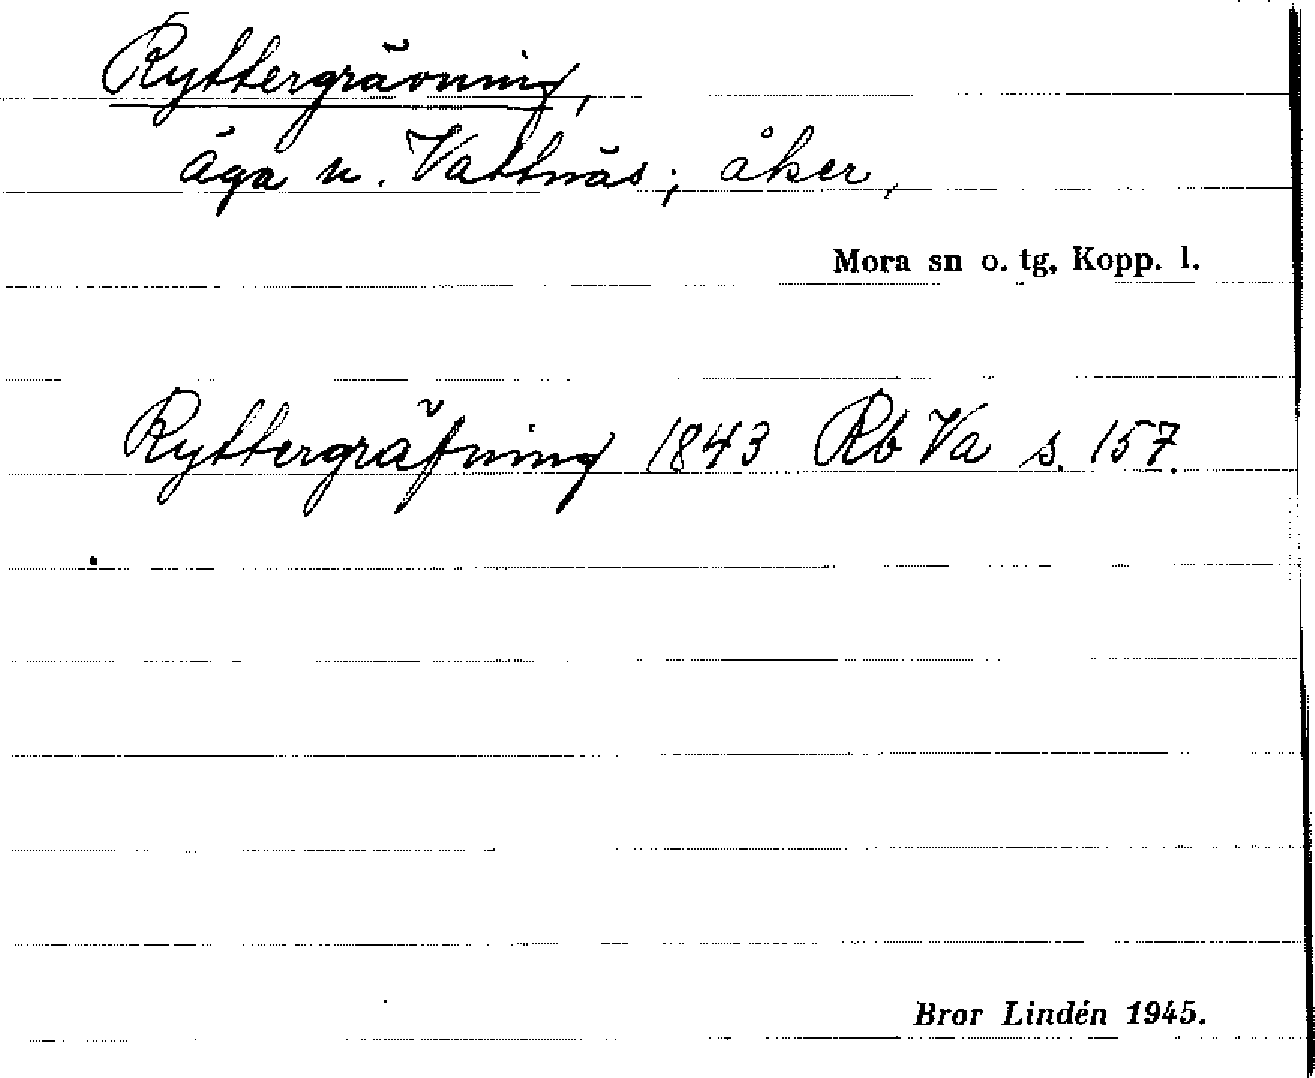 Ryttergrävning,
äga n. Vattnäs; åker,
Mora sn o. tg, Kopp. l.
Ryttergräfning 1843 Rb Va s. 157.
Bror Lindén 1945.